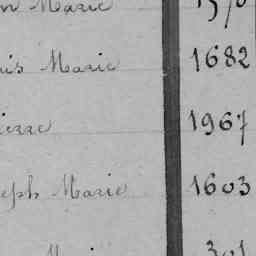 n Marie
uis Marie 1682
ierre 1967
seph Marie 1603
301